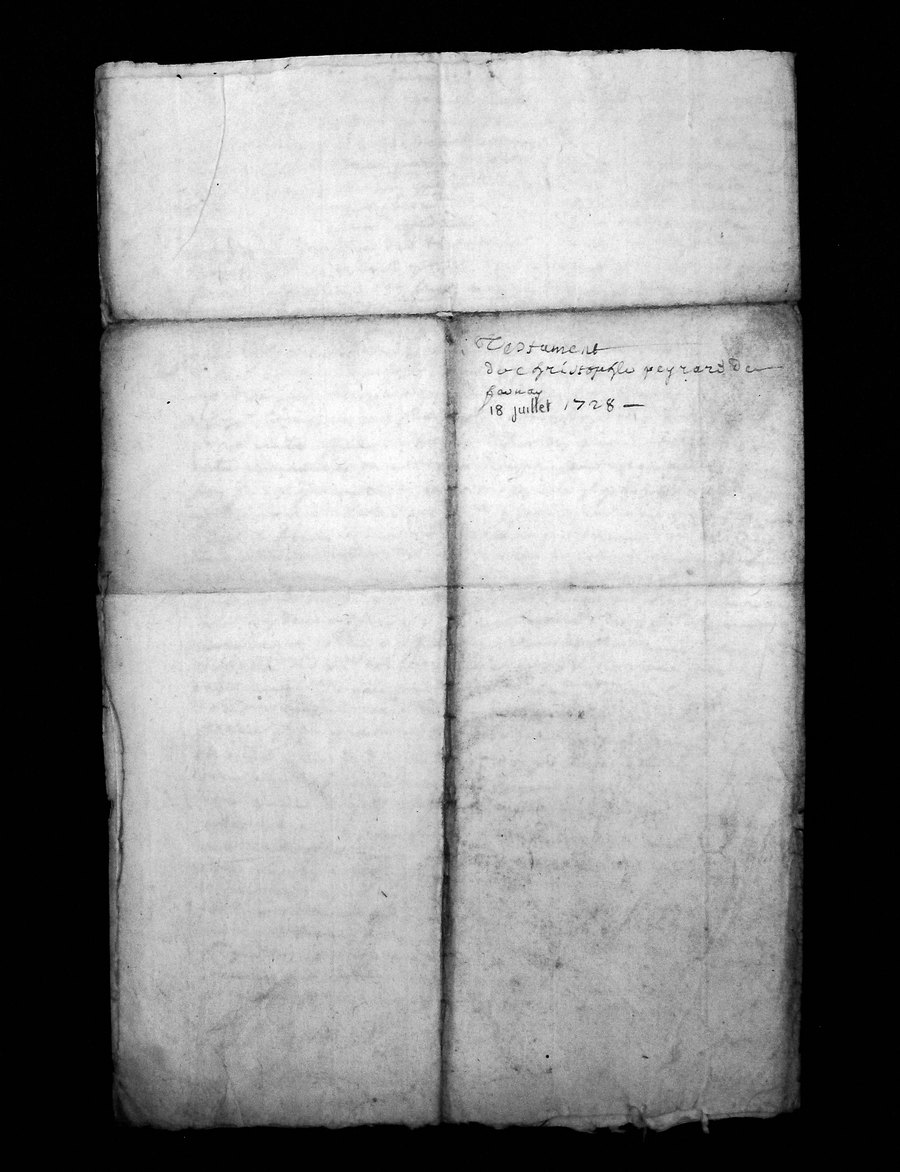 Testament
de christophle peyrard de
18 juillet 1728 —